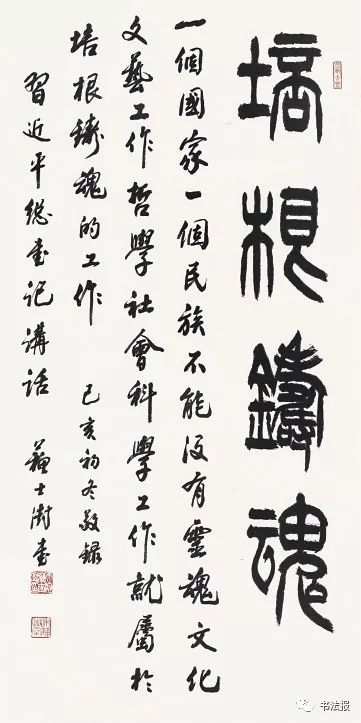 培根鑄魂
一個國家一個民族不能没有靈魂文化
文藝工作哲學社會科學工作就屬於
培根鑄魂的工作 己亥初冬敬録
習近平總書記講話 蘇士澍書
书法报